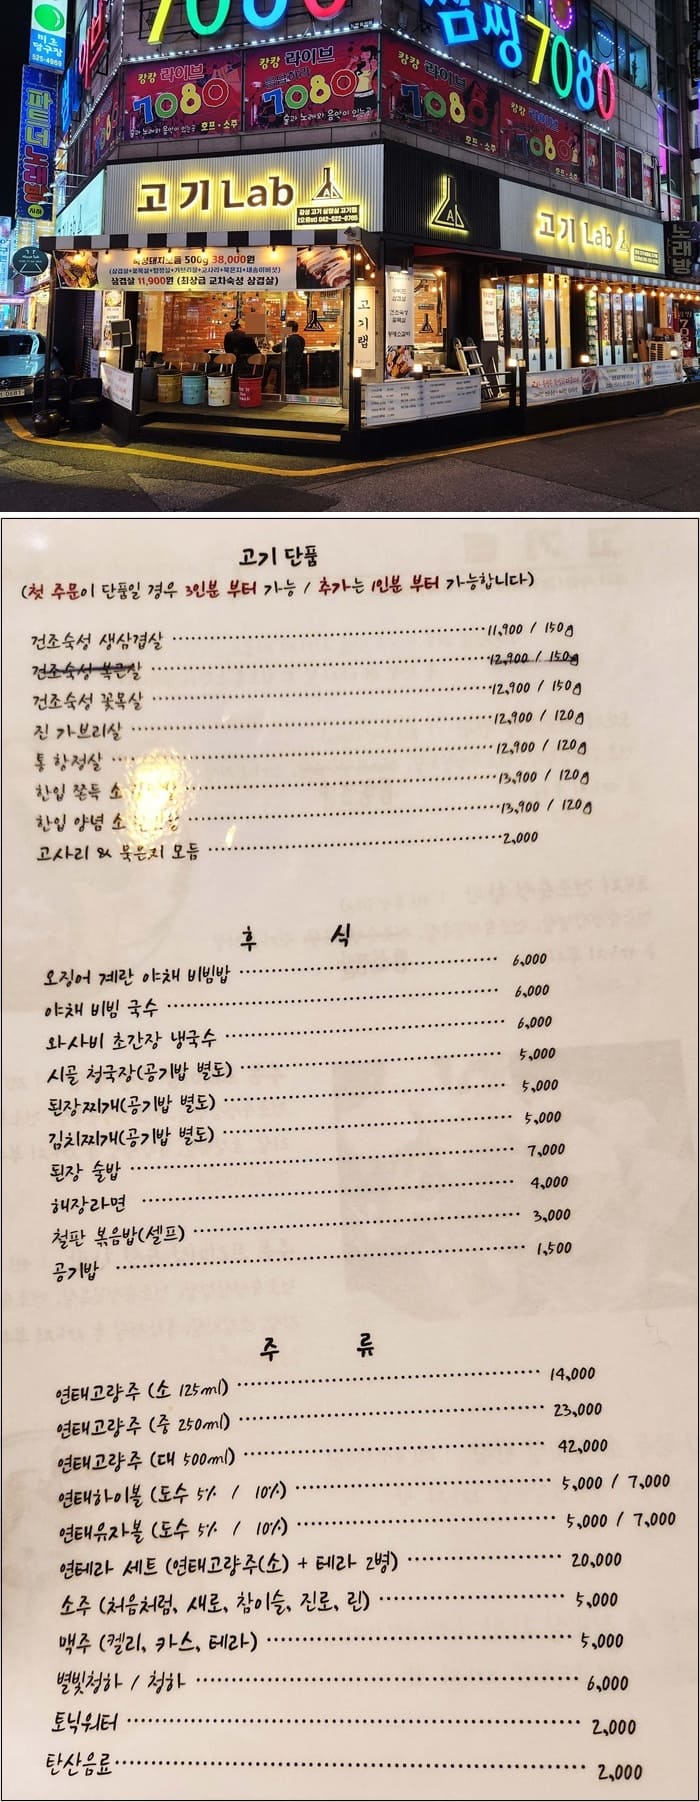 미소
당구장
525-4969
파트너노래방
7080
쌈씽7080
캉캉 라이브
7080
술과 노래와 음악이 있는곳
호프·소주
캉캉 라이브
7080
캉캉 라이브
7080
호프·소주
캉캉 라이브
7080
호프·소주
고기 Lab
감성 고기 실험실 고기랩
고기 Lab
500g 38,000원
삼겹살 11,900원 (최상급 교차숙성 삼겹살)
고기랩
노래방
고기 단품
(첫 주문이 단품일 경우 3인분 부터 가능 / 추가는 1인분 부터 가능합니다)
건조숙성 생삼겹살 11,900 / 150g
건조숙성 복근살 12,900 / 150g
건조숙성 꽃목살 12,900 / 150g
진 가브리살 12,900 / 120g
통 항정살 12,900 / 120g
한입 쫀득 소 13,900 / 120g
한입 양념 소 13,900 / 120g
고사리 & 묵은지 모듬 2,000
후 식
오징어 계란 야채 비빔밥 6,000
야채 비빔 국수 6,000
와사비 초간장 냉국수 6,000
시골 청국장(공기밥 별도) 5,000
된장찌개(공기밥 별도) 5,000
김치찌개(공기밥 별도) 5,000
된장 술밥 7,000
해장라면 4,000
철판 볶음밥(셀프) 3,000
공기밥 1,500
주 류
연태고량주 (소 125ml) 14,000
연태고량주 (중 250ml) 23,000
연태고량주 (대 500ml) 42,000
연태하이볼 (도수 5% / 10%) 5,000 / 7,000
연태유자볼 (도수 5% / 10%) 5,000 / 7,000
연테라 세트 (연태고량주(소) + 테라 2병) 20,000
소주 (처음처럼, 새로, 참이슬, 진로, 린) 5,000
맥주 (켈리, 카스, 테라) 5,000
별빛청하 / 청하 6,000
토닉워터 2,000
탄산음료 2,000